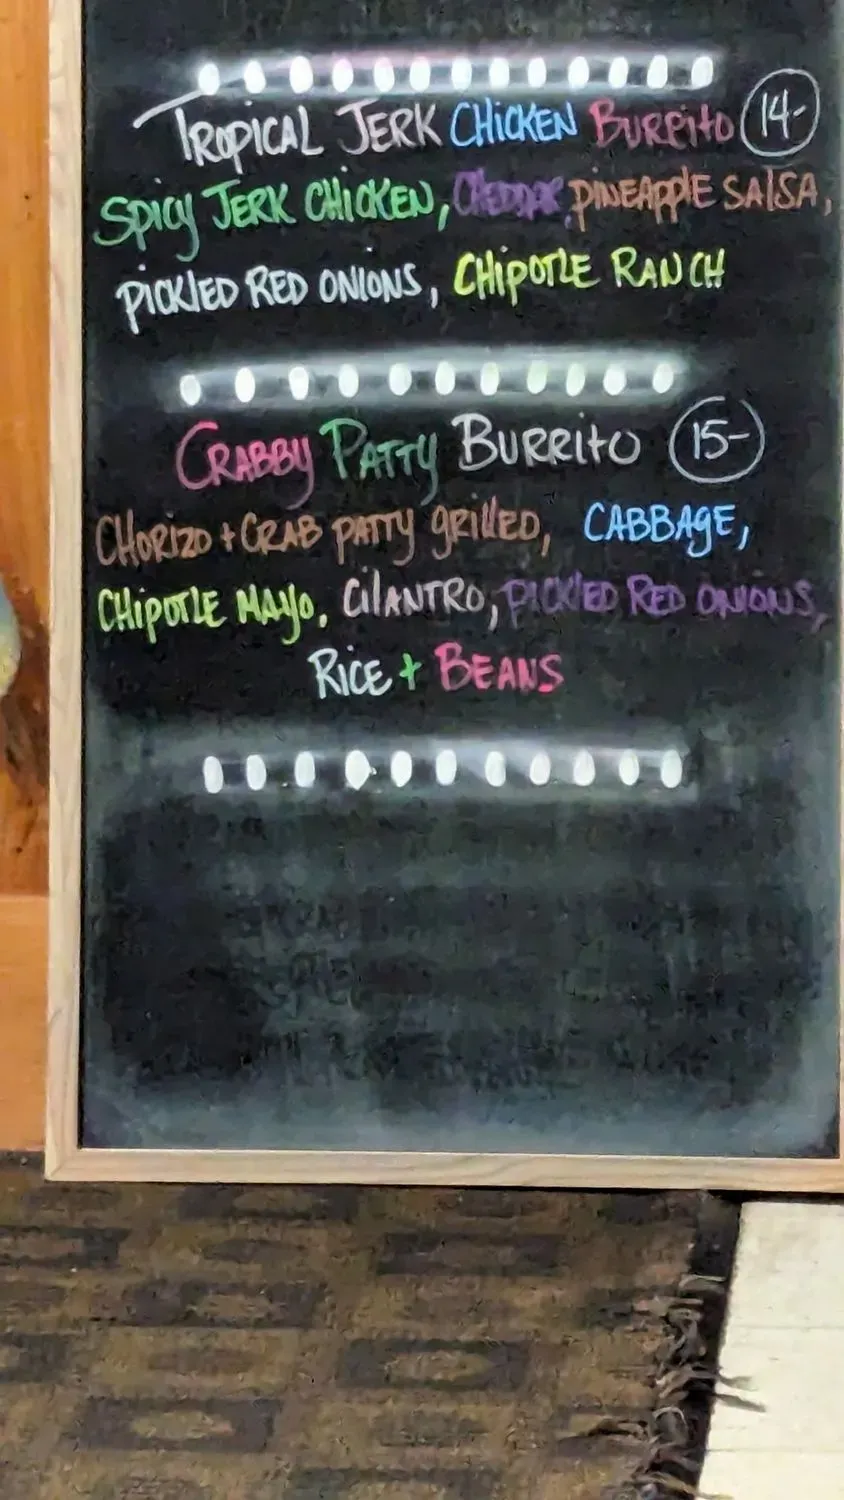 TROPICAL JERK CHICKEN BURRITO 14-
SPICY JERK CHICKEN, CHEDDAR, PINEAPPLE SALSA,
PICKLED RED ONIONS, CHIPOTLE RANCH
CRABBY PATTY BURRITO 15-
CHORIZO + CRAB PATTY GRILLED, CABBAGE,
CHIPOTLE MAYO, CILANTRO, PICKLED RED ONIONS,
RICE + BEANS